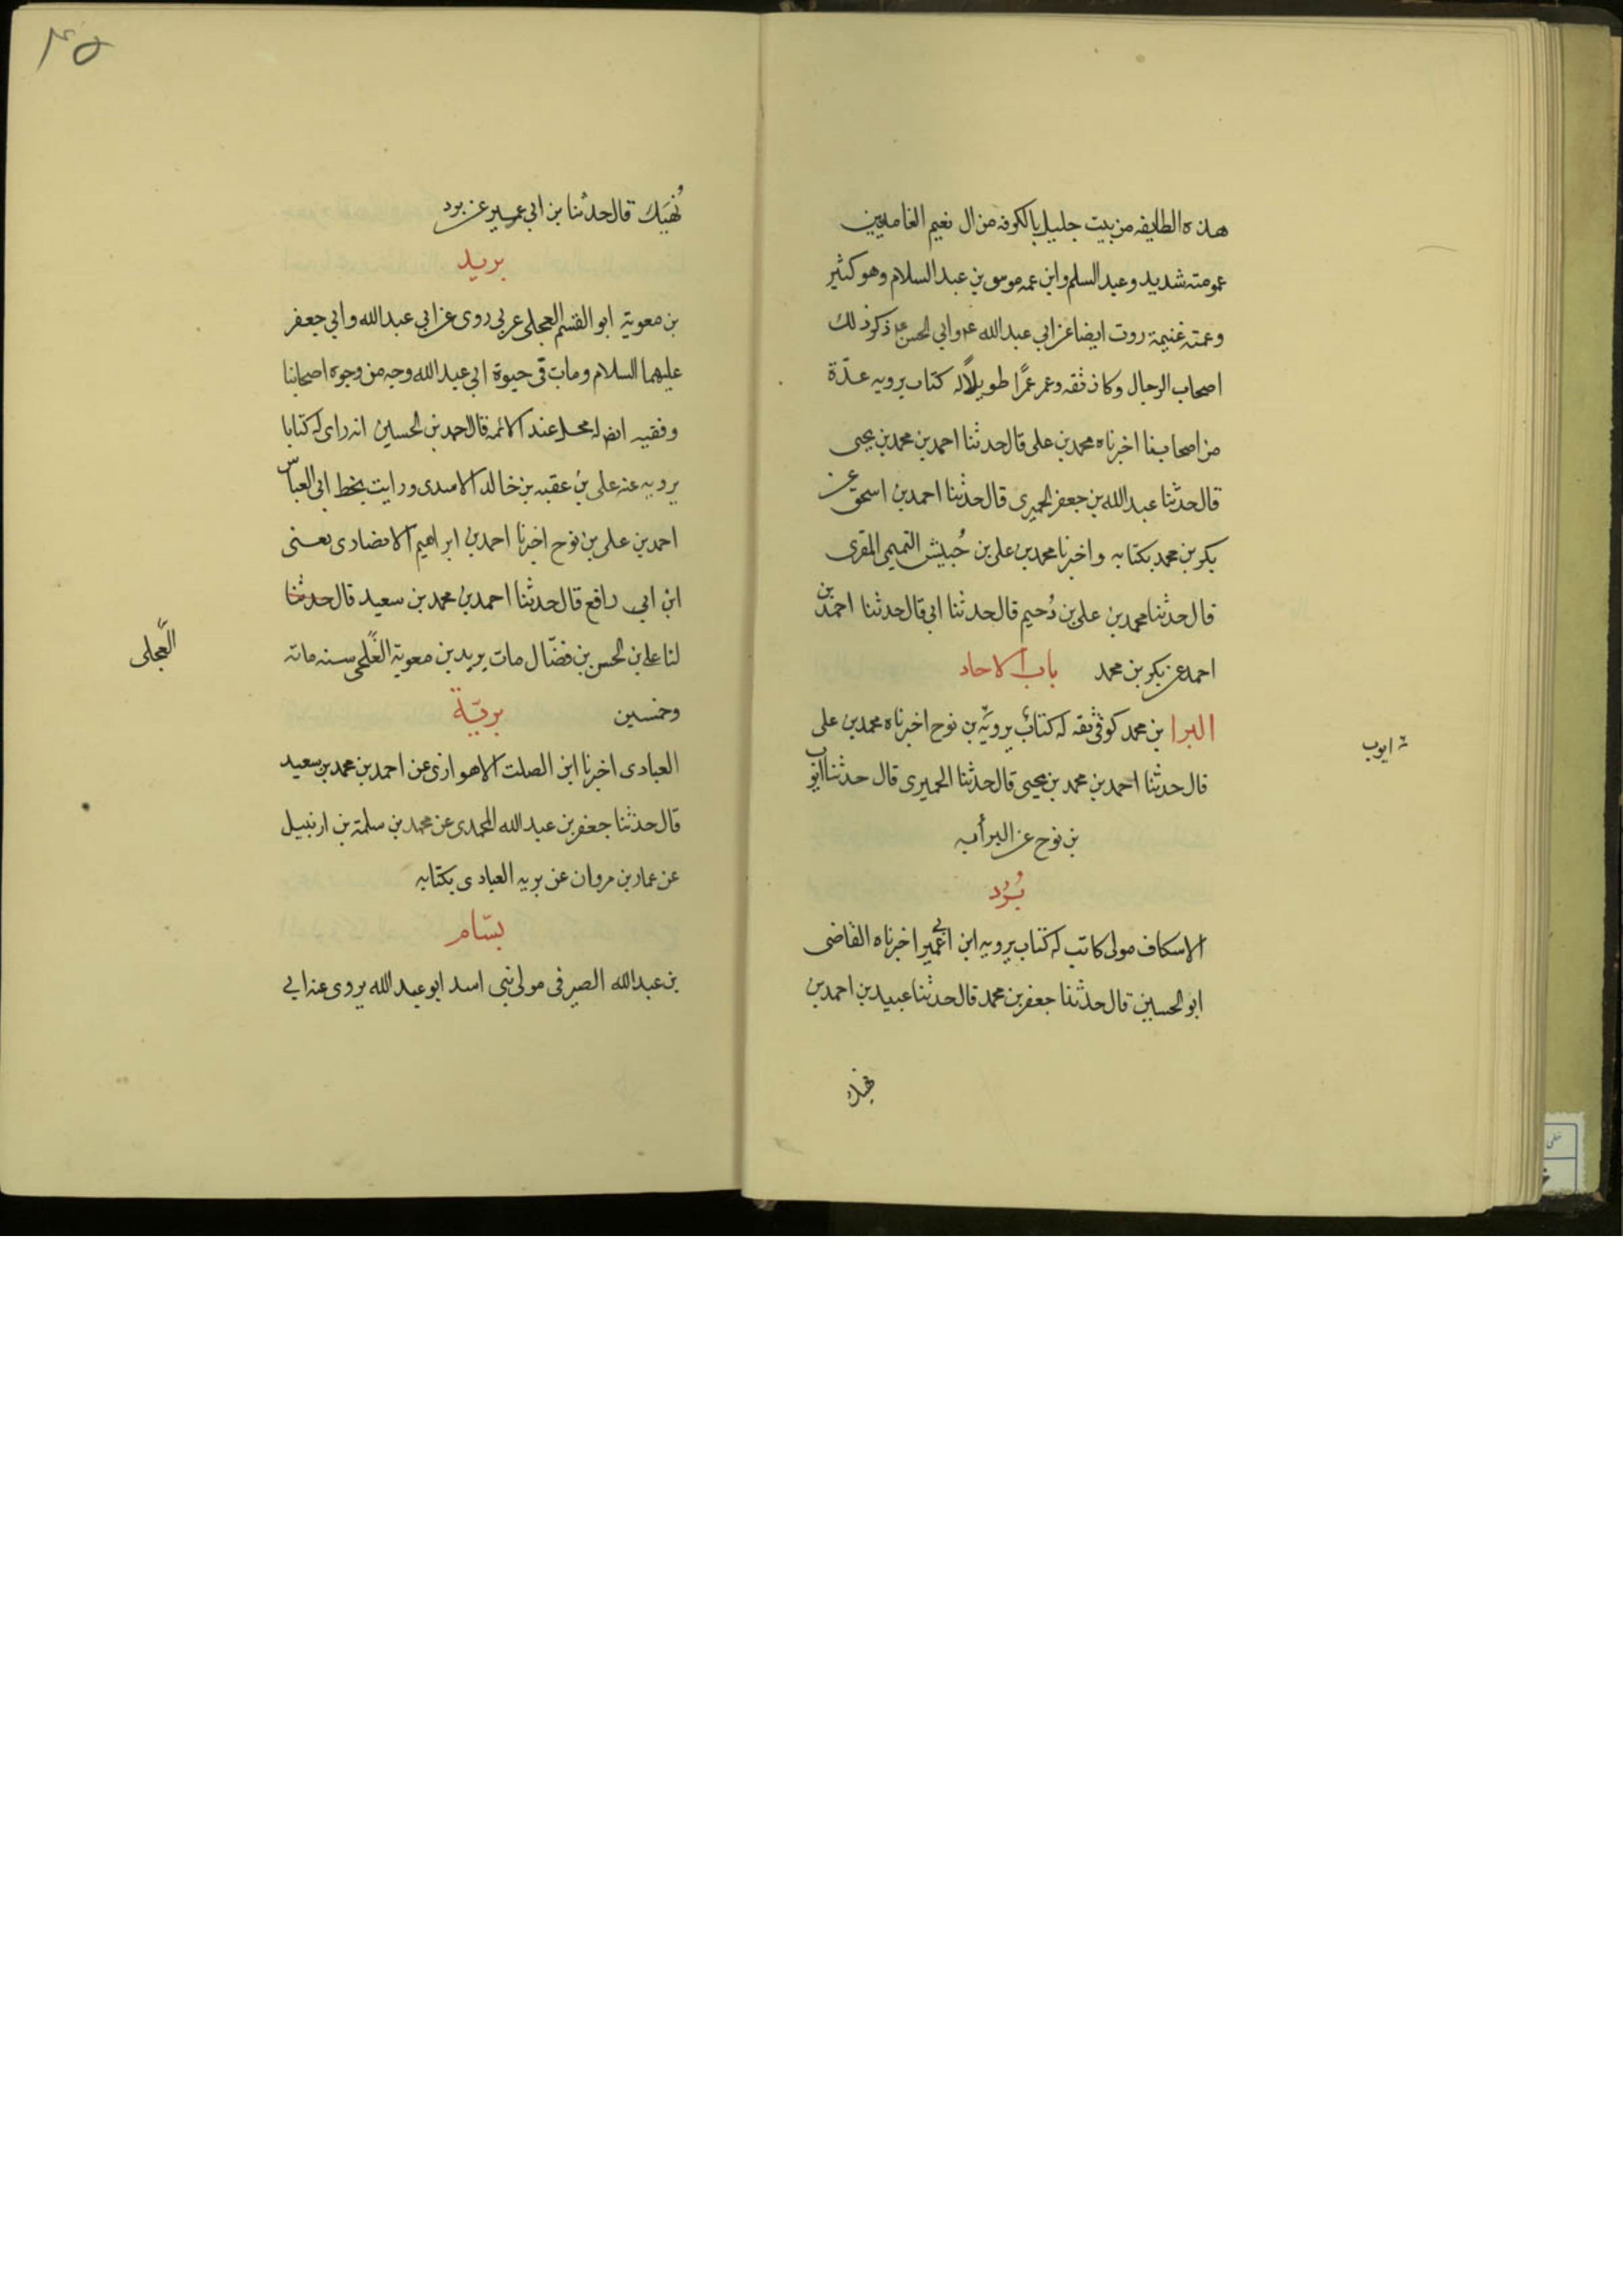 هذه الطايفه من بيت جليل بالكوفه من ال نعيم الغامديين
عمومته شديد وعبد السلم وابن عمه موسى بن عبد السلام وهو كثير
وعمته غنيمة روت ايضا عن ابي عبدالله ع وابي الحسن ع ذكر ذلك
اصحاب الرجال وكان ثقه وعمر عمرًا طويلًا له كتاب يرويه عدّة
من اصحابنا اخبرناه محمد بن على قال حدثنا احمد بن محمد بن يحيى
قال حدثنا عبدالله بن جعفر الحميرى قال حدثنا احمد بن اسحق عن
بكر بن محمد بكتابه واخبرنا محمد بن على بن حُبيش التميمى المقرى
قال حدثنا محمد بن على بن دُحيم قال حدثنا ابى قال حدثنا احمد بن
احمد عن بكر بن محمد باب الاحاد
البرا بن محمد كوفى ثقه له كتاب يرويه بن نوح اخبرناه محمد بن على
قال حدثنا احمد بن محمد بن يحيى قال حدثنا الحميرى قال حدثنا ايوب
ايوب
بن نوح عن البرأ به
بُرد
الاسكاف مولى كاتب له كتاب يرويه ابن ابي عمير اخبرناه القاضى
ابو الحسين قال حدثنا جعفر بن محمد قال حدثنا عبيد بن احمد بن
نهيك
٤٥
نُهَيك قال حدثنا بن ابى عمير عن برد
بريد
بن معوية ابو القسم العجلى عربى روى عن ابى عبدالله وابى جعفر
عليهما السلام ومات فى حيوة ابى عبدالله وجه من وجوه اصحابنا
وفقيه ايضا له محل عند الائمه قال احمد بن الحسين انه راى له كتابا
يرويه عنه على بن عقبه بن خالد الاسدى ورايت بخط ابى العباس
احمد بن على بن نوح اخبرنا احمد بن ابراهيم الانصارى يعنى
ابن ابى رافع قال حدثنا احمد بن محمد بن سعيد قال حدثنا
لنا على بن الحسن بن فضّال مات يريد بن معوية سنه مائة
العجلى
وخمسين بريّة
العبادى اخبرنا ابن الصلت الاهوازى عن احمد بن محمد بن سعيد
قال حدثنا جعفر بن عبدالله المحمدى عن محمد بن سلمة بن ارتبيل
عن عمار بن مروان عن بريه العبادى بكتابه
بسّام
بن عبدالله الصيرفى مولى بنى اسد ابو عبدالله يروى عن ابى